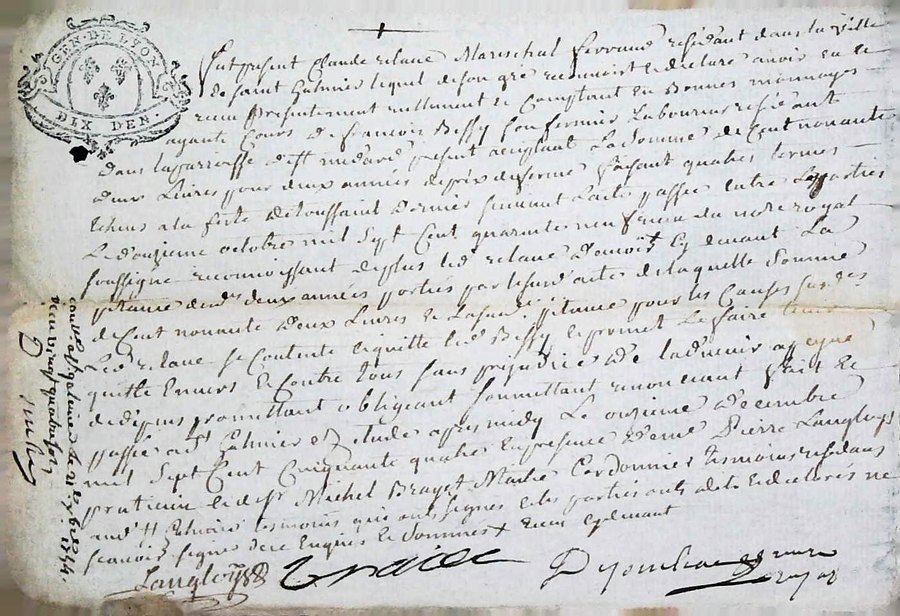 GEN. DE LYON
DIX DEN.
Fut présent Claude relave Mareschal ferrand résidant dans la ville
de saint Galmier lequel de son gré reconnoist et déclare avoir eu et
receu présentement réellement et Comptant en Bonnes monnoyes
ayants Cours de francois Bessy son fermier Laboureur résidant
dans la parroisse de St médard présent acceptant La Somme de Cent nonante
deux Livres pour deux années du prix de ferme faisant quatre termes
échus a la feste de Toussaint dernier suivant L'acte passée entre les parties
Le onzieme octobre mil Sept Cent quarante neuf receu du no.re royal
soussigné reconnoissant de plus led relave d'avoir Ey devant La
pitance desd. deux années portées par led acte de laquelle Somme
de Cent nonante deux Livres et pitance pour les Causes susd.es
Led relave se Contente et quitte led Bessy et promet Le faire tenir
quitte Envers et Contre tous sans préjudice de
promettant obligeant soumettant renonceant fait et
passée a St Galmier Etude apres midy Le onzieme décembre
mil Sept Cent Cinquante quatre En présence de me Pierre Langloys
praticien et de Sr Michel Brayet Maitre Cordonnier tesmoins résidans
aud St Galmier tesmoins qui ont signés et les parties ont déclarés ne
scavoir signer de ce Enquis et sommés
Langloys
Brayet
Dyombar
royal
contr.é a St galmier le 21 Xbre 1754
receu